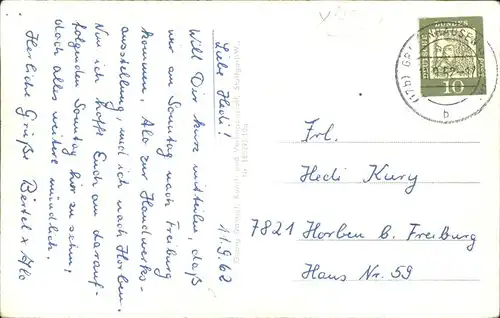 11.9.62
Liebe Hedi!
Will Dir kurz mitteilen, daß
wir am Sonntag nach Freiburg
kommen. Also zur Handwerks-
ausstellung, und ich nach Horben.
Nun ich hofft Euch am darauf-
folgenden Sonntag hier zu sehn,
doch alles weitere mündlich.
Herliche Grüße Bärbel
Frl.
Hedi Kury
7821 Horben b. Freiburg
Haus Nr. 59
10
b